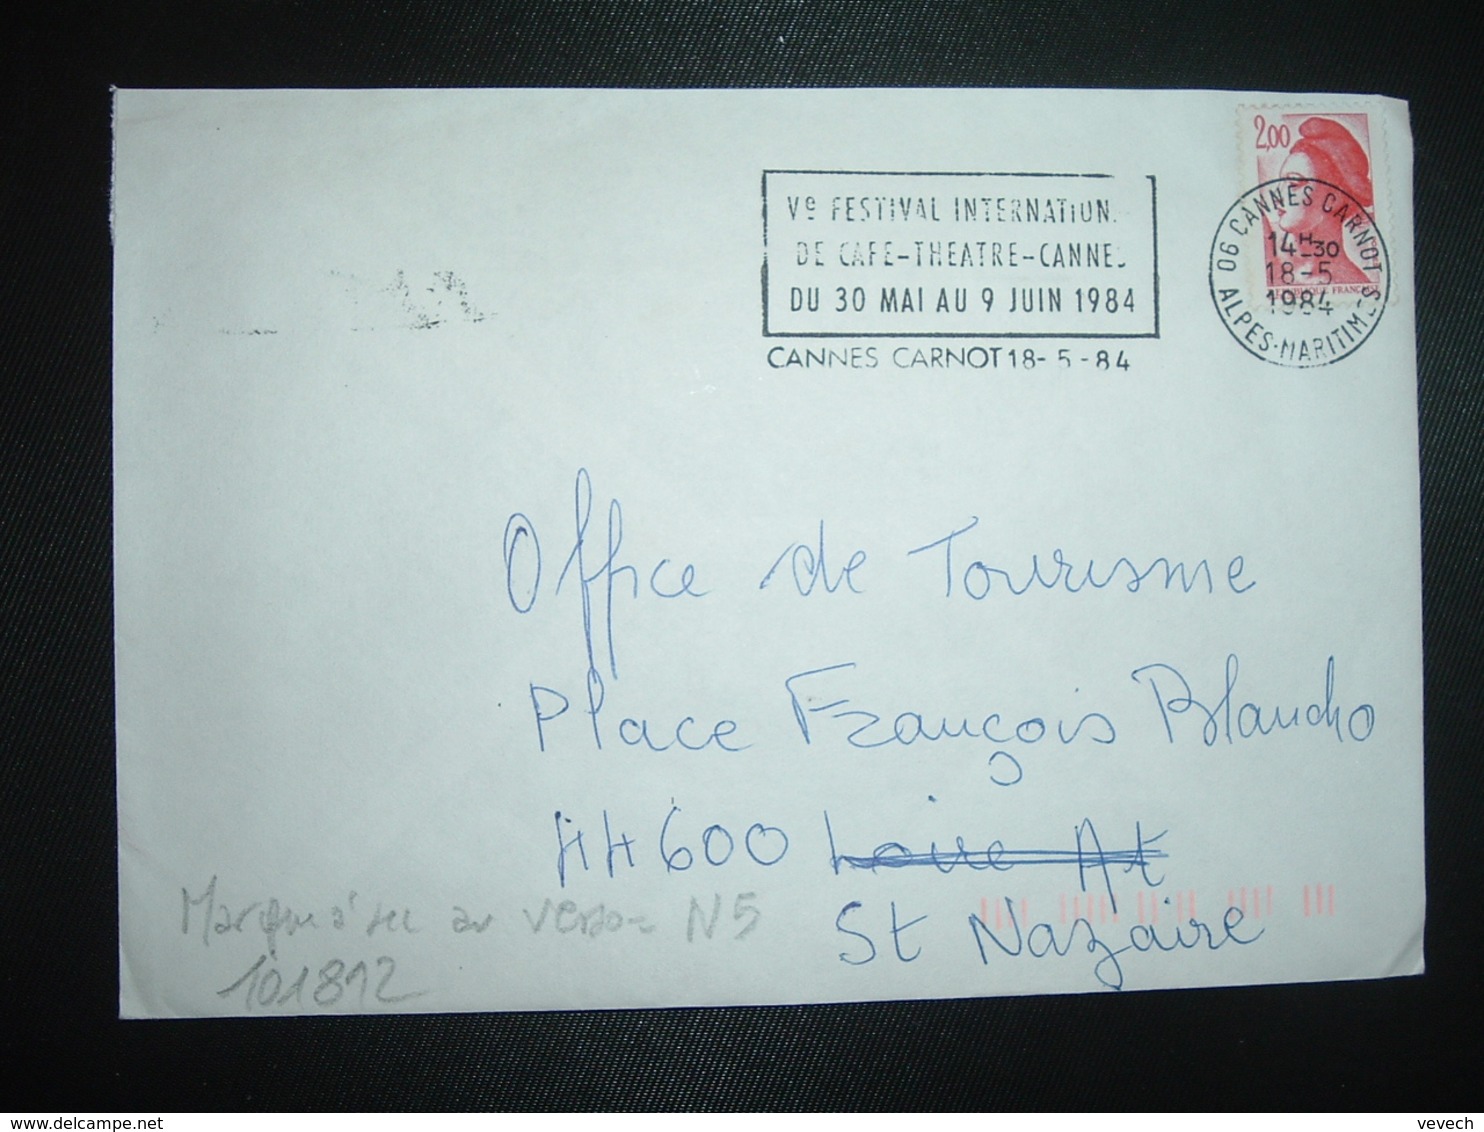 2,00
Ve FESTIVAL INTERNATION
DE CAFE-THEATRE-CANNES
DU 30 MAI AU 9 JUIN 1984
CANNES CARNOT 18-5-84
06 CANNES CARNOT
14H30
18-5
1984
ALPES-MARITIMES
REPUBLIQUE FRANÇAISE
Office de Tourisme
Place François Blancho
44600 Loire At
St Nazaire
Marque à sec au verso - N5
101812
delcampe.net
vevech